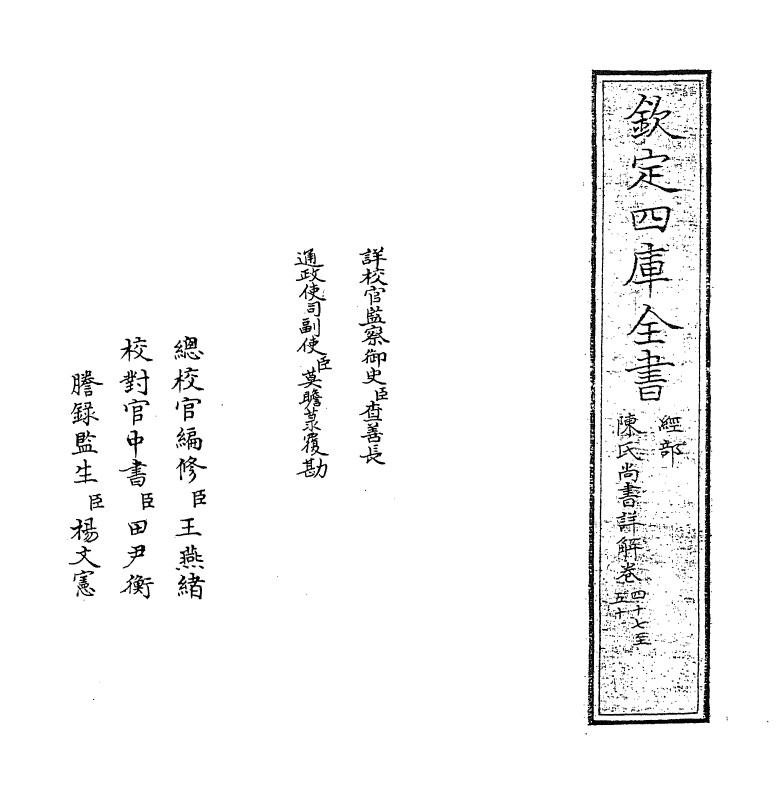 欽定四庫全書
經部
陳氏尚書詳解卷四十七至五十
詳校官監察御史臣查善長
通政使司副使臣莫瞻菉覆勘
總校官編修臣王燕緒
校對官中書臣田尹衡
謄錄監生臣楊文憲